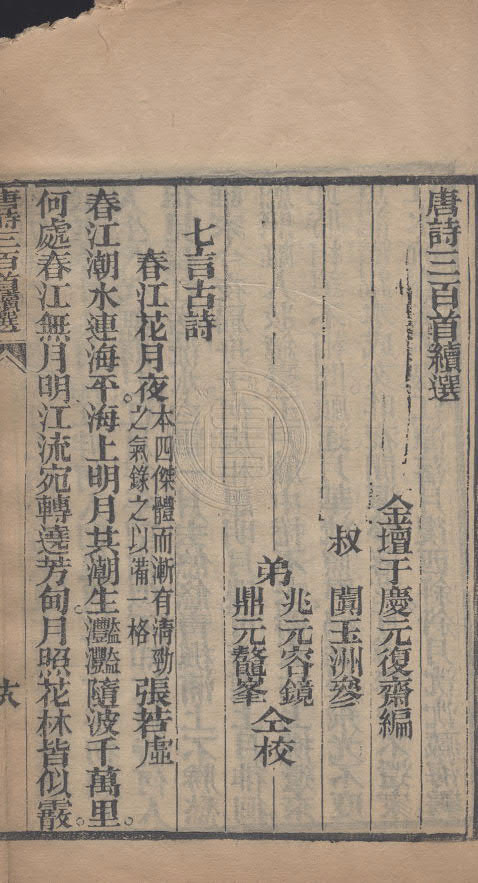 唐詩三百首續選
金壇于慶元復齋編
叔 閶玉洲參
弟 兆元容鏡
鼎元鼇峯 仝校
七言古詩
春江花月夜 本四傑體而漸有清勁之氣錄之以備一格 張若虛
春江潮水連海平海上明月共潮生灩灩隨波千萬里
何處春江無月明江流宛轉遶芳甸月照花林皆似霰
唐詩三百首續選